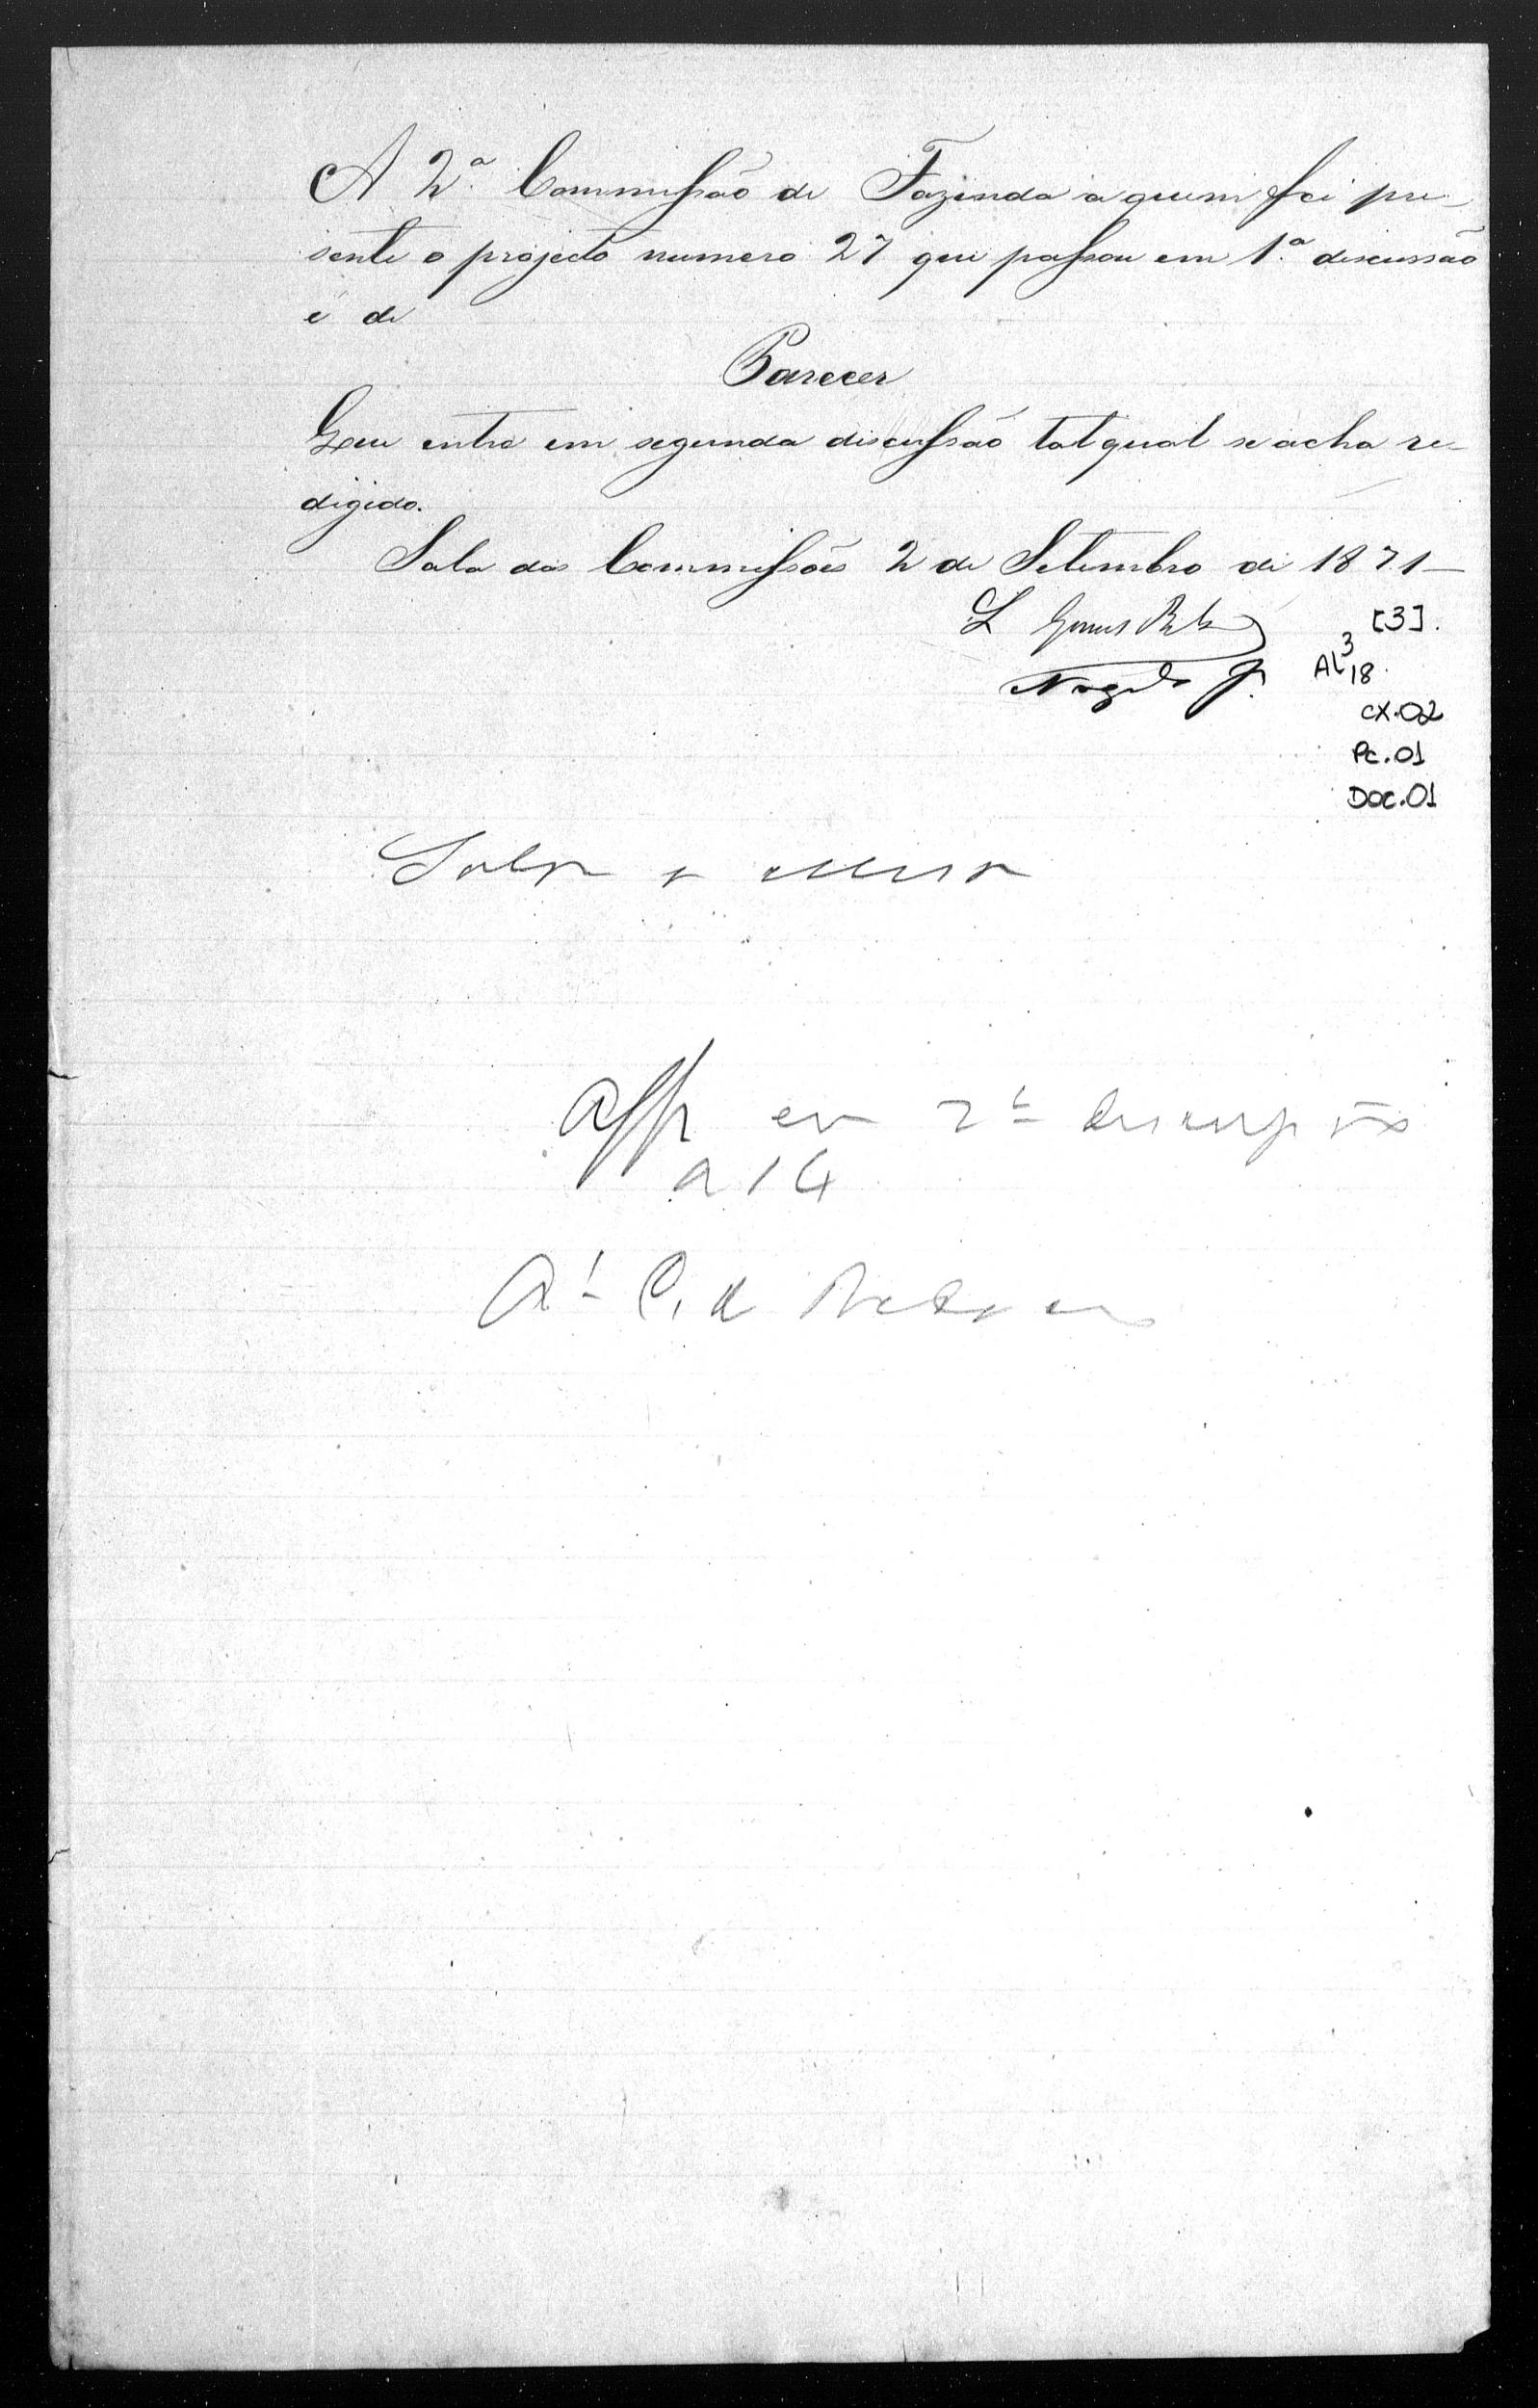 A 2.ª Commissão de Fazenda a quem foi pre-
sente o projecto numero 27 que passou em 1.ª discussão
é de
Parecer
Que entre em segunda discussão tal qual se acha re-
digido.
Sala das Commissões 2 de Setembro de 1871 -
L Gomes
[3].
AL 3
18.
CX.02
Pc.01
Doc.01
Sobre a Mesa
App em 2ª discussão
a 14
A' C. de Redacção